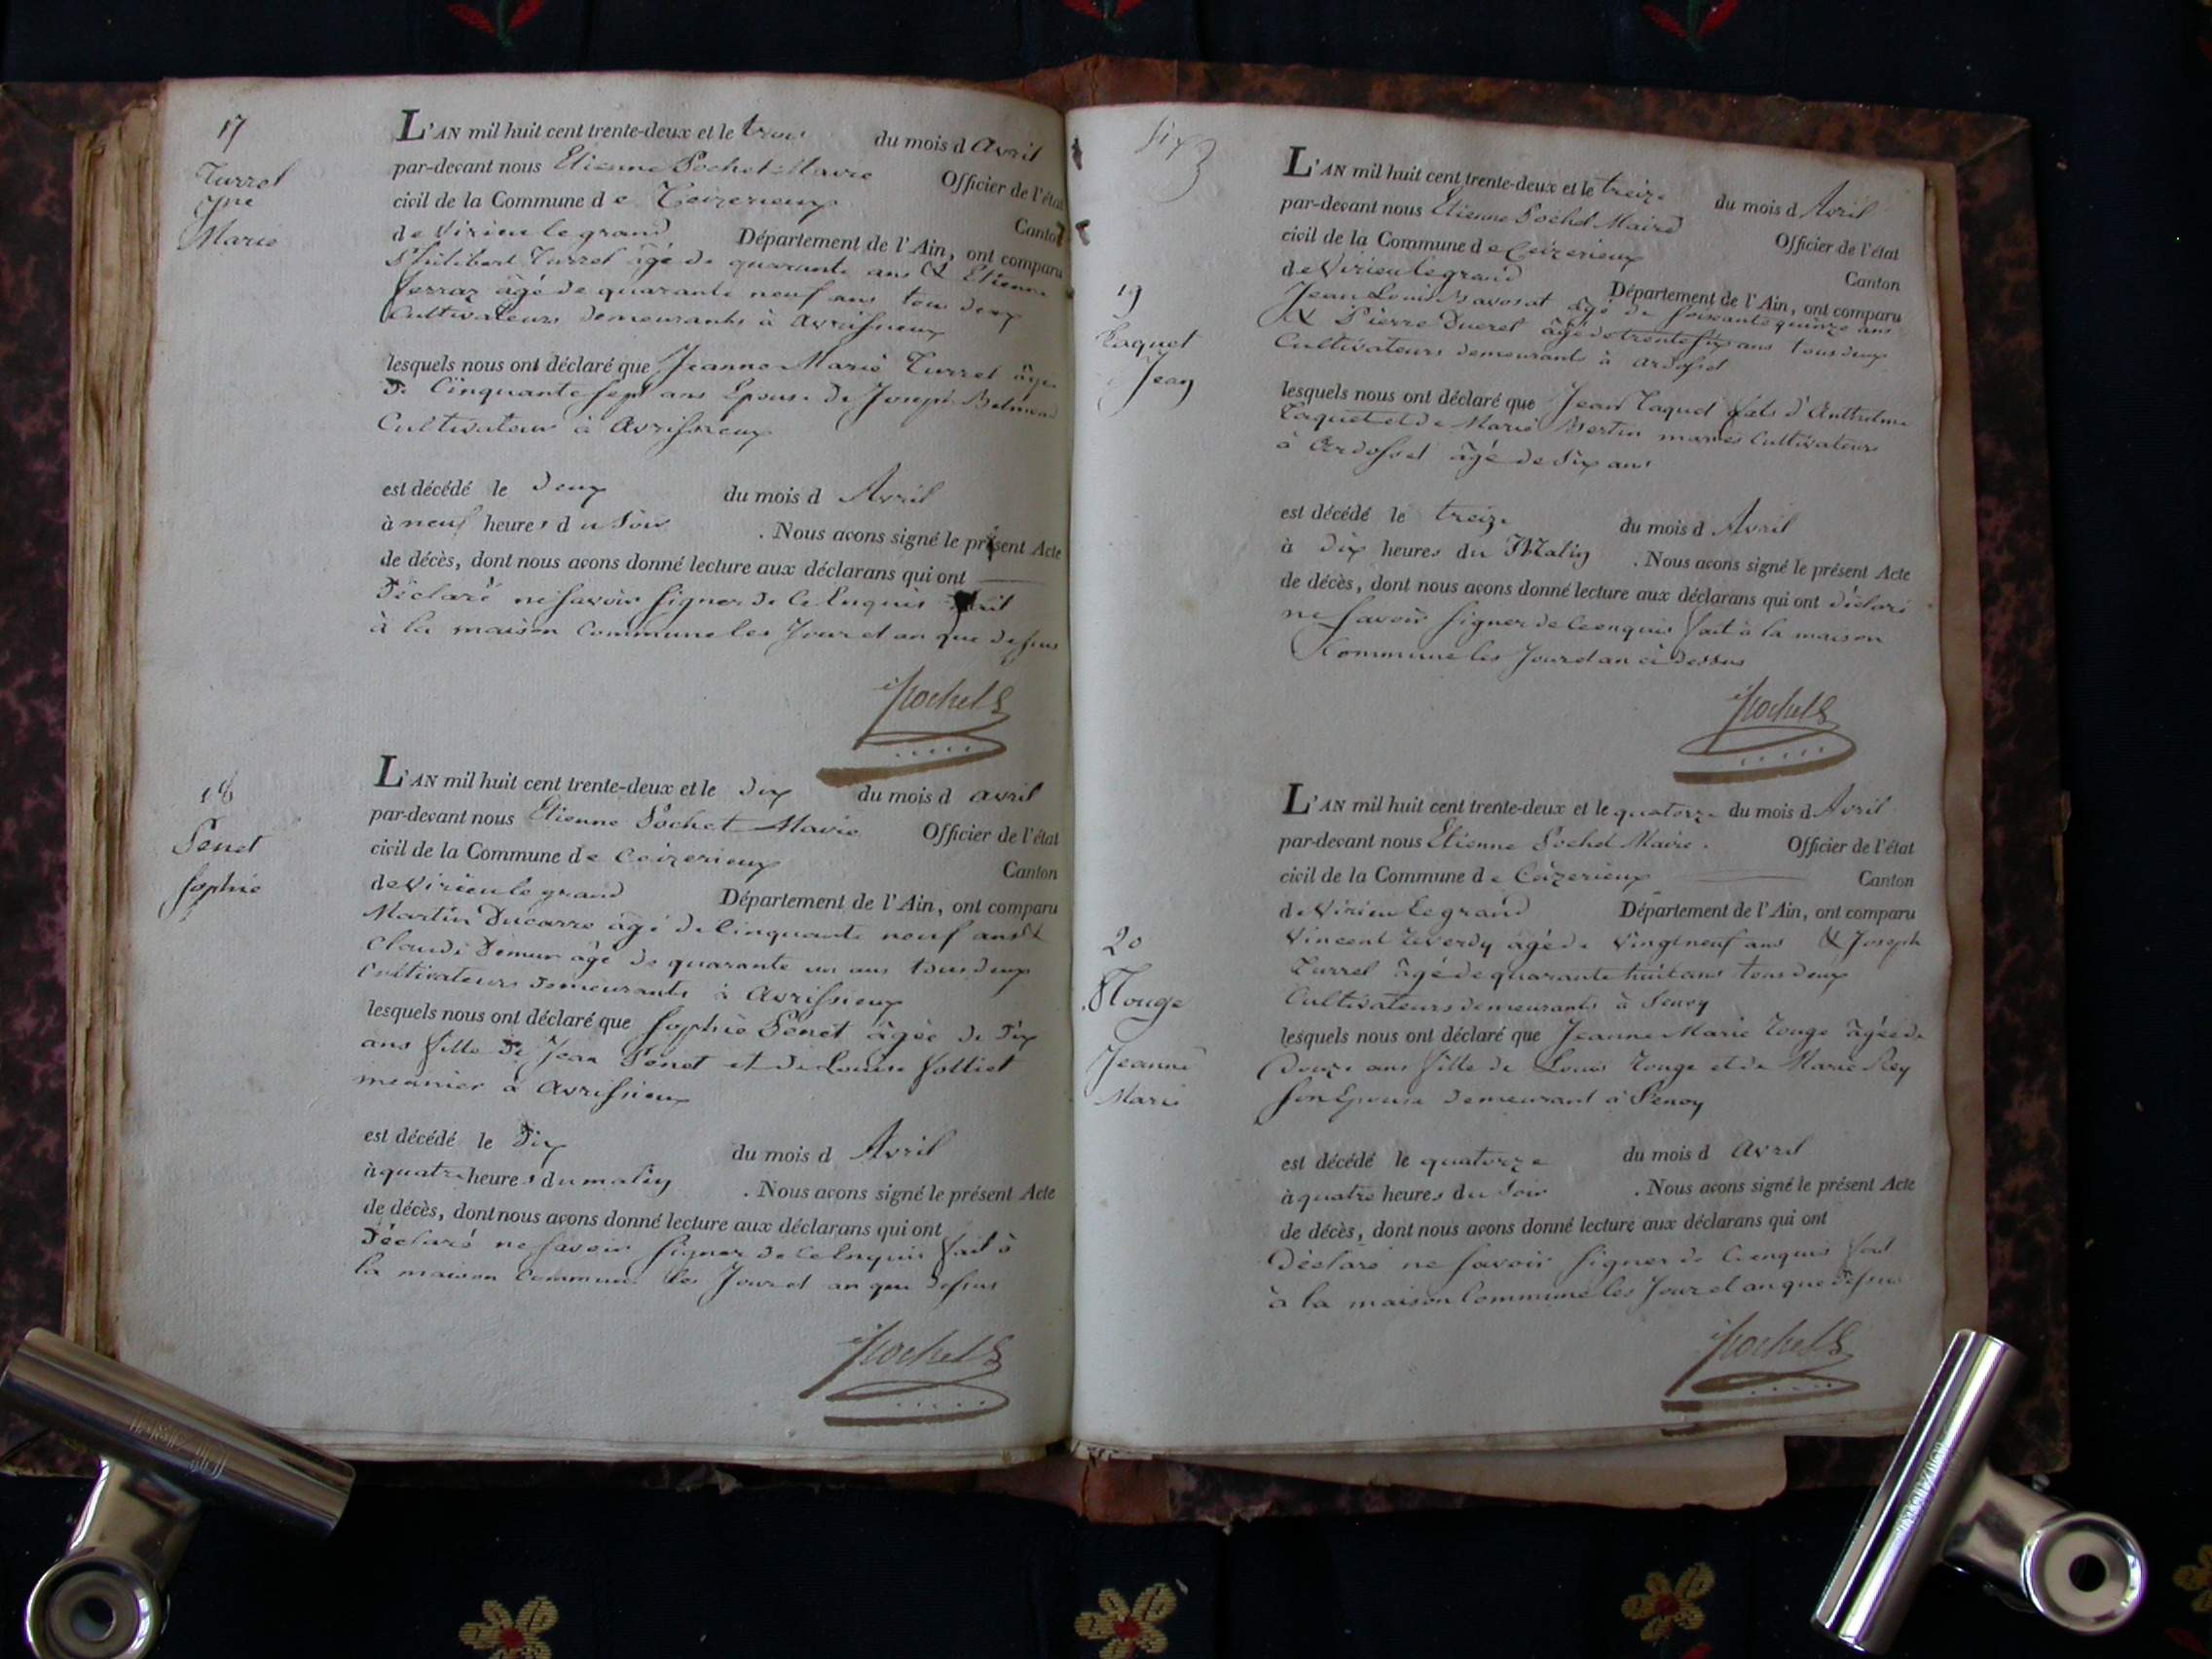 17
Turrel
Jne
Marie
L'AN mil huit cent trente-deux et le trois du mois d Avril
par-devant nous Etienne Pochet Maire Officier de l'état
civil de la Commune d e Ceizerieux Canton
de Virieu le grand Département de l'Ain, ont comparu
Philibert Turrel âgé de quarante ans & Etienne
ferraz âgé de quarante neuf ans tous deux
Cultivateurs demeurants à Avrissieux
lesquels nous ont déclaré que Jeanne Marie Turrel âgée
de Cinquante sept ans Epouse de Joseph Belmond
Cultivateur à Avrissieux
est décédé le deux du mois d Avril
à neuf heures du Soir . Nous avons signé le présent Acte
de décès, dont nous avons donné lecture aux déclarans qui ont
Déclaré ne savoir signer de ce Enquis fait
à la maison Commune les Jour et an que dessus
Pochet
18
Penet
sophie
L'AN mil huit cent trente-deux et le dix du mois d avril
par-devant nous Etienne Pochet Maire Officier de l'état
civil de la Commune d e Ceizerieux Canton
de Virieu le grand Département de l'Ain, ont comparu
Martin Ducarre âgé de Cinquante neuf ans &
Claude Demur âgé de quarante un ans tous deux
Cultivateurs demeurants à Avrissieux
lesquels nous ont déclaré que sophie Penet âgée de dix
ans fille de Jean Penet et de Louise folliet
meunier à Avrissieux
est décédé le Dix du mois d Avril
à quatre heures du matin . Nous avons signé le présent Acte
de décès, dont nous avons donné lecture aux déclarans qui ont
Déclaré ne savoir signer de ce Enquis fait à
la maison commune les Jour et an que dessus
Pochet
six
19
Taquet
Jean
L'AN mil huit cent trente-deux et le treize du mois d Avril
par-devant nous Etienne Pochet Maire Officier de l'état
civil de la Commune d e Ceizerieux Canton
de Virieu le grand Département de l'Ain, ont comparu
Jean Louis âgé de soixante quinze ans
& Pierre Ducret âgé de trente six ans tous deux
Cultivateurs demeurants à ardosset
lesquels nous ont déclaré que Jean Taquet fils d'Anthelme
Taquet et de Marie Bertin mariés Cultivateurs
à Ardosset âgé de dix ans
est décédé le treize du mois d Avril
à dix heures du Matin . Nous avons signé le présent Acte
de décès, dont nous avons donné lecture aux déclarans qui ont déclaré
ne savoir signer de ce enquis fait à la maison
Commune les Jour et an ci dessus
Pochet
20
Rouge
Jeanne
Marie
L'AN mil huit cent trente-deux et le quatorze du mois d Avril
par-devant nous Etienne Pochet Maire . Officier de l'état
civil de la Commune d e Ceizerieux Canton
de Virieu Le grand Département de l'Ain, ont comparu
Vincent Reverdy âgé de Vingt neuf ans & Joseph
Turrel âgé de quarante huit ans tous deux
Cultivateurs demeurants à
lesquels nous ont déclaré que Jeanne Marie Rouge âgée de
Douze ans fille de Louis Rouge et de Marie Rey
son Epouse demeurant à
est décédé le quatorze du mois d Avril
à quatre heures du soir . Nous avons signé le présent Acte
de décès, dont nous avons donné lecture aux déclarans qui ont
Déclaré ne savoir signer de ce enquis fait
à la maison Commune les Jour et an que dessus
Pochet